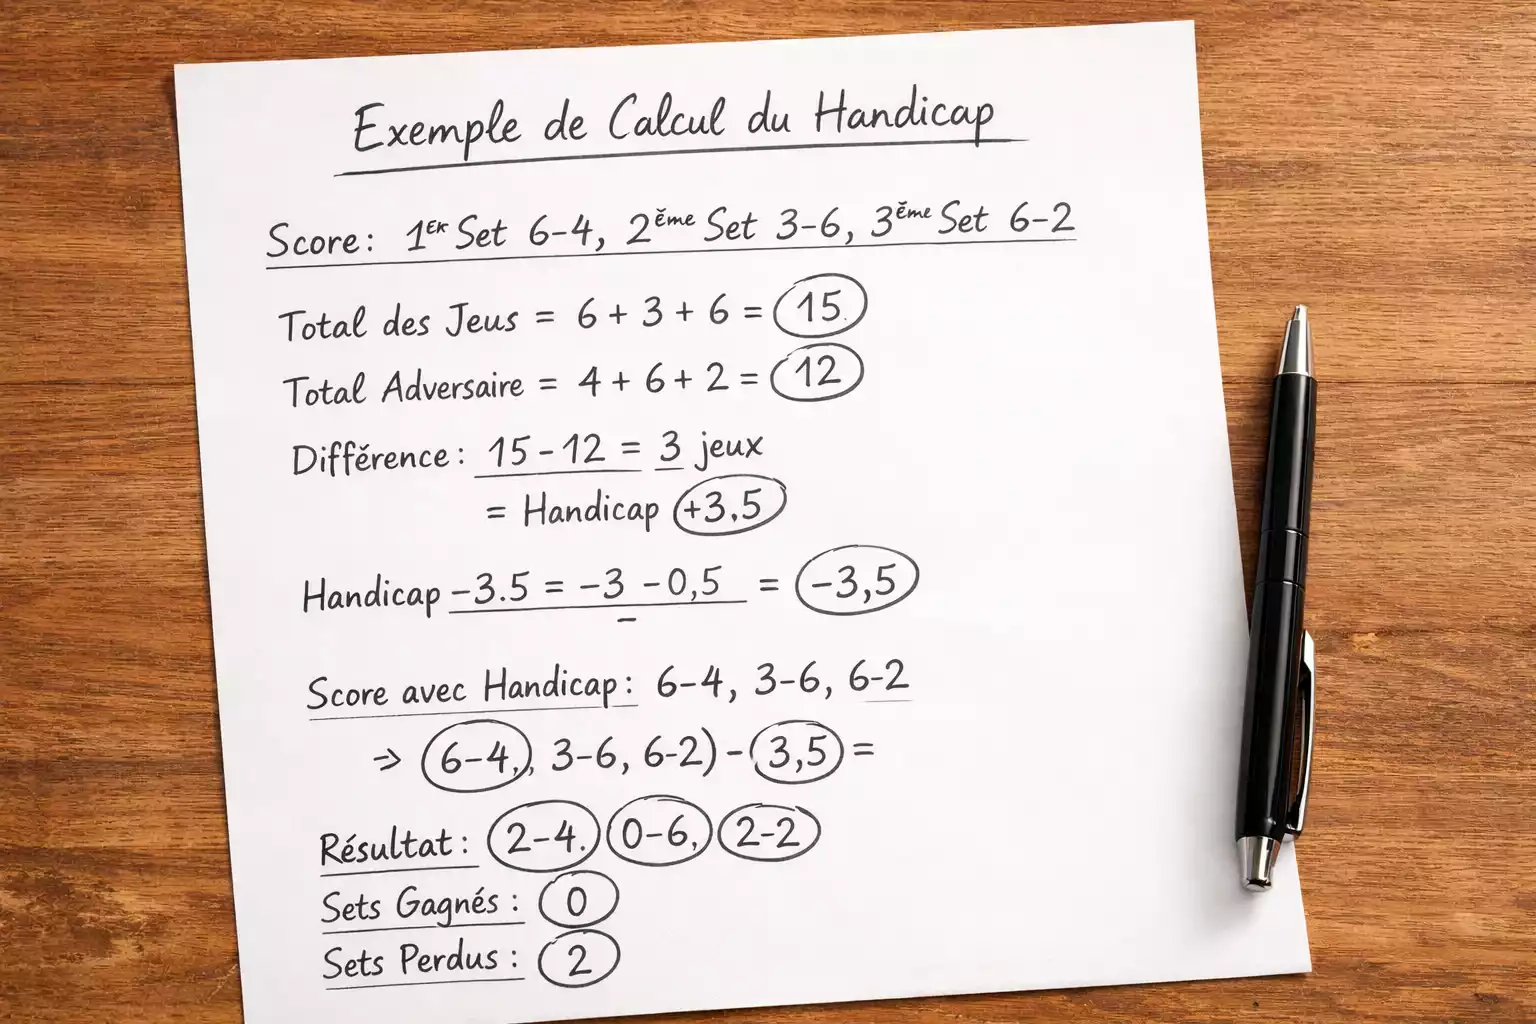 Exemple de Calcul du Handicap
Score: 1er Set 6-4, 2ěme Set 3-6, 3ěme Set 6-2
Total des Jeus = 6 + 3 + 6 = 15.
Total Adversaire = 4 + 6 + 2 = 12
Différence: 15 - 12 = 3 jeux
= Handicap +3,5
Handicap -3.5 = -3 - 0,5 = -3,5
Score avec Handicap: 6-4, 3-6, 6-2
⇒ 6-4,, 3-6, 6-2) - 3,5 =
Résultat: 2-4. 0-6, 2-2
Sets Gagnés: 0
Sets Perdus: 2